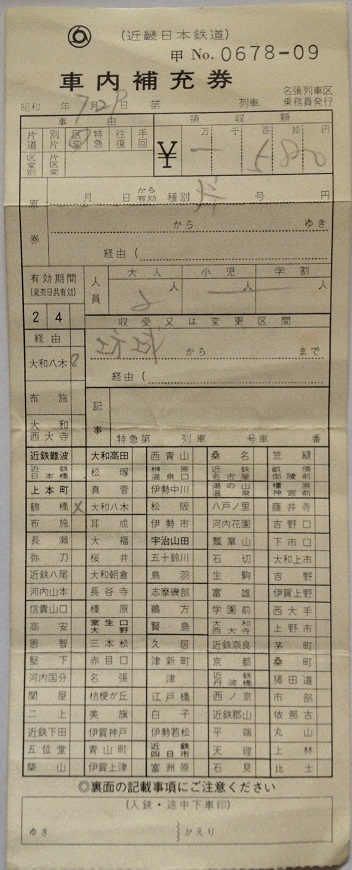 (近畿日本鉄道)
甲 No. 0678-09
車内補充券
名張列車区
乗務員発行
昭和 年 7月29日 第 列車
事由 領収額
片道 別片 区変 特急 往復 手回
区変別 片区変
¥ 万 千 百 拾 円
一 580
原券
月 日 から有効 種別 号 円
から ゆき
経由(
有効期間
(発売日共有効)
人員 大人 小児 学割
人 人 人
2 4
収受又は変更区間
から まで
経由(
経由
大和八木
布施
大和西大寺
記事
特急第 列車 号車 番
近鉄難波 大和高田 西青山 桑名 笠縫
近鉄日本橋 松塚 榊原温泉口 近鉄名古屋 畝傍御陵前
上本町 真菅 伊勢中川 湯の山温泉 橿原神宮前
鶴橋 大和八木 松阪 八戸ノ里 藤井寺
布施 耳成 伊勢市 河内花園 吉野口
長瀬 大福 宇治山田 瓢箪山 下市口
弥刀 桜井 五十鈴川 石切 大和上市
近鉄八尾 大和朝倉 鳥羽 生駒 吉野
河内山本 長谷寺 志摩磯部 富雄 伊賀上野
信貴山口 榛原 鵜方 学園前 西大手
高安 室生口大野 賢島 大和西大寺 上野市
恩智 三本松 久居 近鉄奈良 茅町
堅下 赤目口 津新町 京都 桑町
河内国分 名張 津 近鉄丹波橋 猪田道
関屋 桔梗が丘 江戸橋 西ノ京 市部
二上 美旗 白子 近鉄郡山 依那古
近鉄下田 伊賀神戸 伊勢若松 平端 丸山
五位堂 青山町 近鉄四日市 天理 上林
築山 伊賀上津 富洲原 石見 比土
◎裏面の記載事項にご注意ください
(入鉄・途中下車印)
ゆき かえり